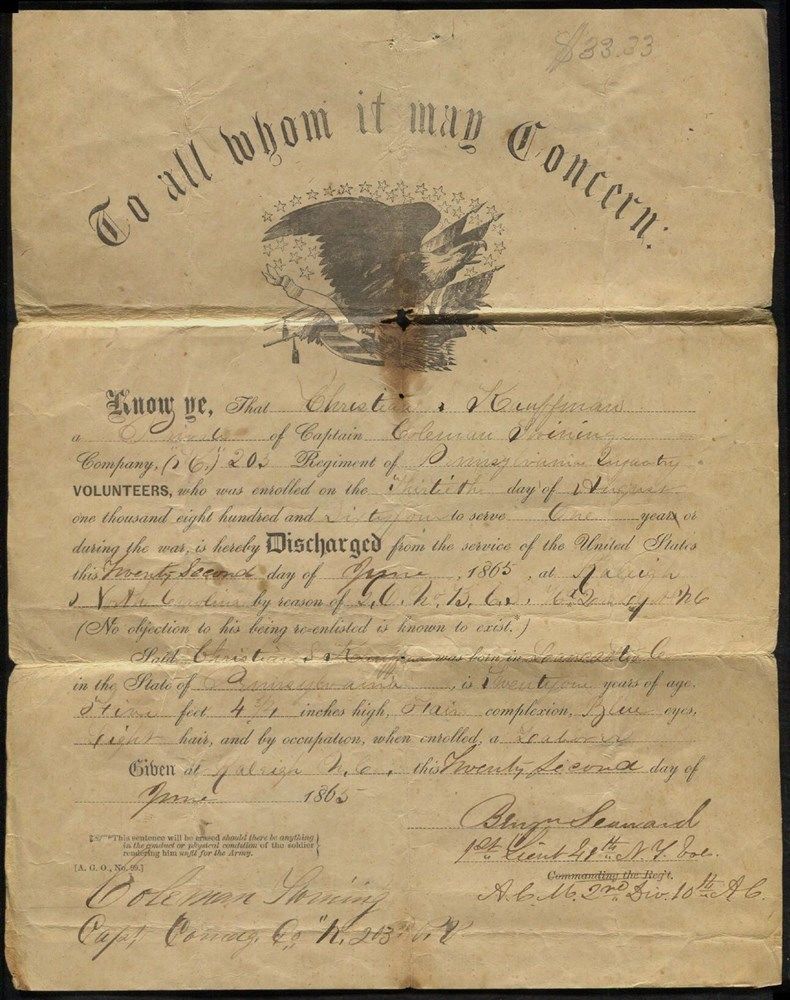 $33.33
To all whom it may Concern:
Know ye, That Christian Kauffman
a of Captain Coleman
Company, ("K,") 203 Regiment of Pennsylvania Infantry
VOLUNTEERS, who was enrolled on the Thirtieth day of August
one thousand eight hundred and Sixty four to serve One years or
during the war, is hereby Discharged from the service of the United States
this Twenty Second day of June, 1865, at Raleigh
North Carolina by reason of
(No objection to his being re-enlisted is known to exist.*)
Said Christian S was born in Lancaster Co
in the State of Pennsylvania, is Twenty one years of age,
Five feet 4 inches high, Fair complexion, Blue eyes,
Light hair, and by occupation, when enrolled, a Laborer
Given at Raleigh N. C. this Twenty Second day of
June 1865
*This sentence will be erased should there be anything
in the conduct or physical condition of the soldier
rendering him unfit for the Army.
[A. G. O., No. 99.]
Benjn Seaward
1st Lieut N. Y. Vol.
Commanding the Reg't.
A. C. M. 2nd Div. 10th A. C.
Coleman
Capt Comdg. Co "K" 203 P. V